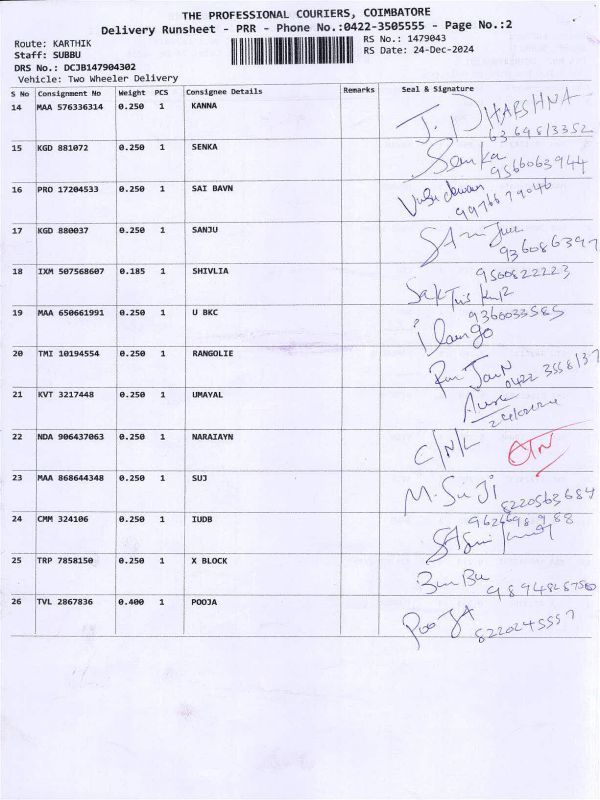 THE PROFESSIONAL COURIERS, COIMBATORE
Delivery Runsheet - PRR - Phone No.:0422-3505555 - Page No.:2
Route: KARTHIK
RS No.: 1479043
Staff: SUBBU
RS Date: 24-Dec-2024
DRS No.: DCJB147904302
Vehicle: Two Wheeler Delivery
S No Consignment No Weight PCS Consignee Details Remarks Seal & Signature
14 MAA 576336314 0.250 1 KANNA J. DHARSHNA
15 KGD 881072 0.250 1 SENKA Senka
9566063944
16 PRO 17204533 0.250 1 SAI BAVN
9976679046
17 KGD 880037 0.250 1 SANJU
936086397
18 IXM 507568607 0.185 1 SHIVLIA 9500822223
19 MAA 650661991 0.250 1 U BKC 9360033585
ilango
20 TMI 10194554 0.250 1 RANGOLIE
0422 3558137
21 KVT 3217448 0.250 1 UMAYAL
22 NDA 906437063 0.250 1 NARAIAYN C/N/L
23 MAA 868644348 0.250 1 SUJ M. SuJi
8220563684
24 CMM 324106 0.250 1 IUDB
25 TRP 7858150 0.250 1 X BLOCK
26 TVL 2867836 0.400 1 POOJA PooJA
8220245557